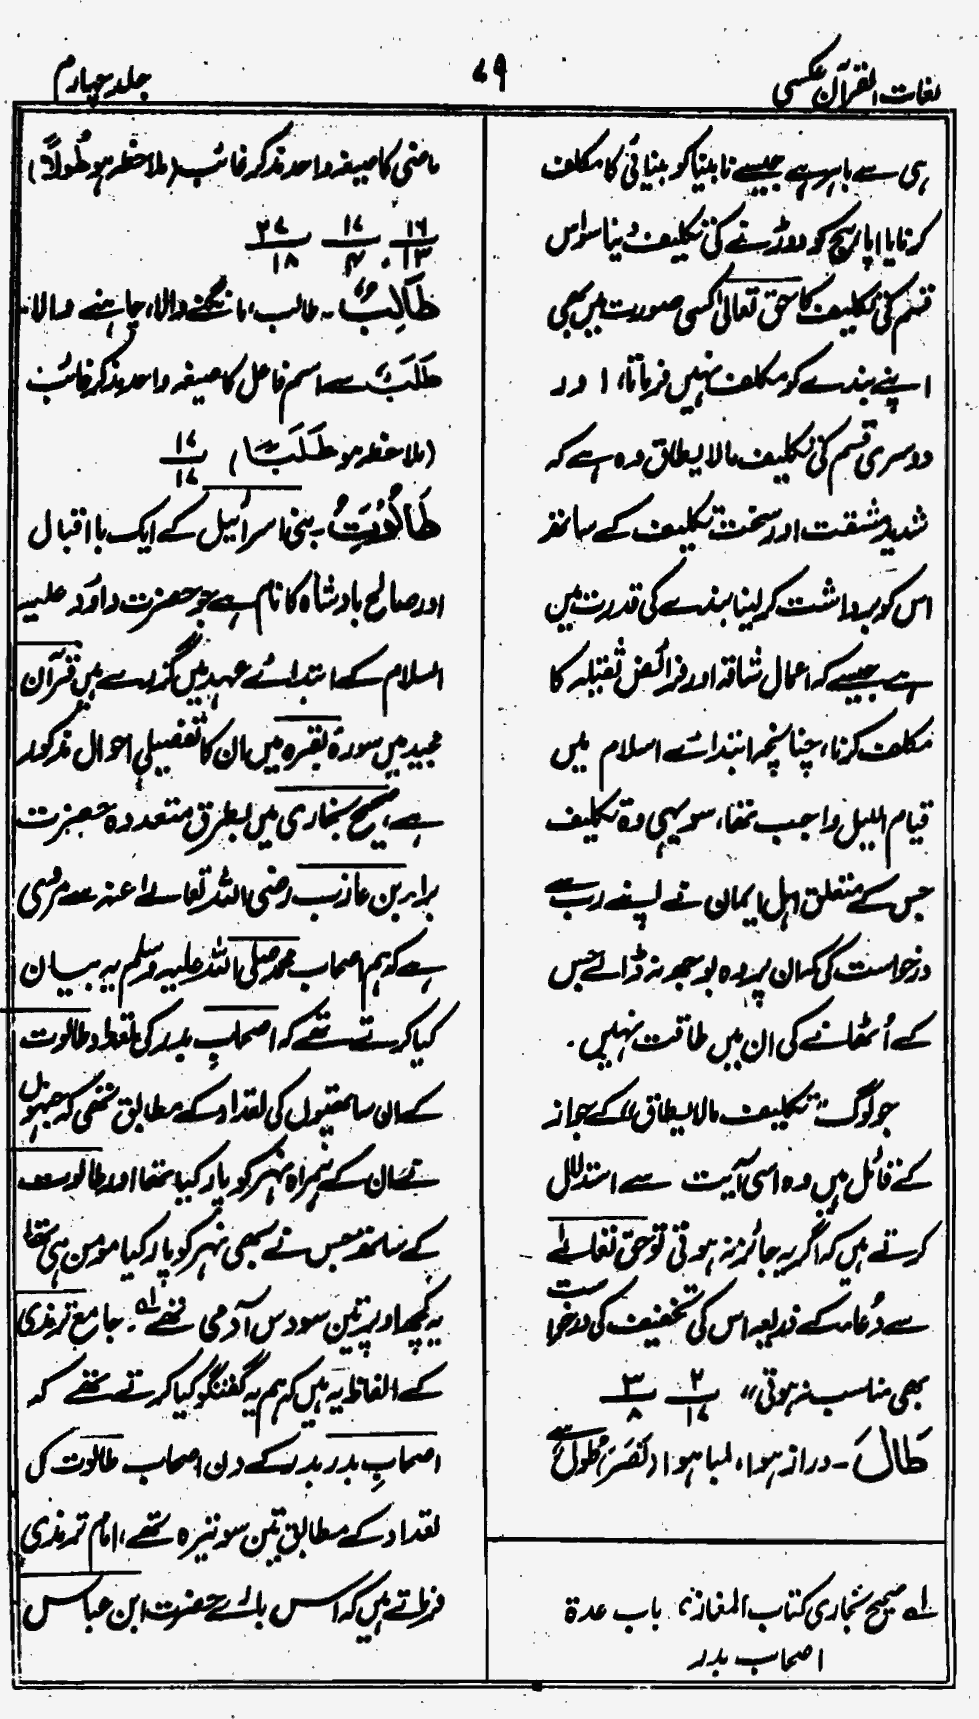 لغات القرآن عکسی
۷۹
جلد چہارم
ہی سے باہر ہے جیسے نابینا کو بینائی کا مکلف
کرنا یا اپاہج کو دوڑنے کی تکلیف دینا سو اس
قسم کی تکلیف کا حق تعالیٰ کسی صورت میں بھی
اپنے بندے کو مکلف نہیں فرماتا، اور
دوسری قسم کی تکلیف مالا یطاق وہ ہے کہ
شدید مشقت اور سخت تکلیف کے ساتھ
اس کو برداشت کر لینا بندے کی قدرت میں
ہے جیسے کہ اعمال شاقہ اور فرائض ثقیلہ کا
مکلف کرنا، چنانچہ ابتدائے اسلام میں
قیام اللیل واجب تھا، سو یہی وہ تکلیف
جس کے متعلق اہل ایمان نے اپنے رب سے
درخواست کی کہ ان پر وہ بوجھ نہ ڈالئے جس
کے اُٹھانے کی ان میں طاقت نہیں.
جو لوگ "تکلیف مالا یطاق" کے جواز
کے قائل ہیں وہ اسی آیت سے استدلال
کرتے ہیں کہ اگر یہ جائز نہ ہوتی تو حق تعالےٰ
سے دُعاء کے ذریعہ اس کی تخفیف کی درخواست
بھی مناسب نہ ہوتی" ۲/۱۷ ۳/۸
طَالَ ۔ دراز ہوا، لمبا ہوا (نَصَرَ) طُولٌ سے
ماضی کا صیغہ واحد مذکر غائب (ملاحظہ ہو طُولاً)
۱۶/۱۳، ۱۷/۴ ۲۷/۱۸
طَالِبُ ۔ طالب، مانگنے والا، چاہنے والا،
طَلَبٌ سے اسم فاعل کا صیغہ واحد مذکر غائب
(ملاحظہ ہو طَلَبًا) ۱۷/۱۷
طَالُوْتُ ۔ بنی اسرائیل کے ایک با اقبال
اور صالح بادشاہ کا نام ہے جو حضرت داؤد علیہ
السلام کے ابتدائے عہد میں گزرے ہیں قرآن
مجید میں سورۂ بقرہ میں ان کا تفصیلی احوال مذکور
ہے، صحیح بخاری میں بطرق متعددہ حضرت
براء بن عازب رضی اللہ تعالےٰ عنہ سے مروی
ہے کہ ہم اصحاب محمد صلی اللہ علیہ وسلم یہ بیان
کیا کرتے تھے کہ اصحابِ بدر کی تعداد طالوت
کے ان ساتھیوں کی تعداد کے مطابق تھی کہ جنہوں
نے ان کے ہمراہ نہر کو پار کیا تھا اور طالوت
کے ساتھ جس نے بھی نہر کو پار کیا مومن ہی تھا
یہ کچھ اوپر تین سو دس آدمی تھے لہ ۔ جامع ترمذی
کے الفاظ یہ ہیں کہ ہم یہ گفتگو کیا کرتے تھے کہ
اصحابِ بدر بدر کے دن اصحاب طالوت کی
تعداد کے مطابق تین سو تیرہ تھے، امام ترمذی
فرماتے ہیں کہ اس بارے حضرت ابن عباس
لہ صحیح بخاری کتاب المغازی، باب عدة
اصحاب بدر